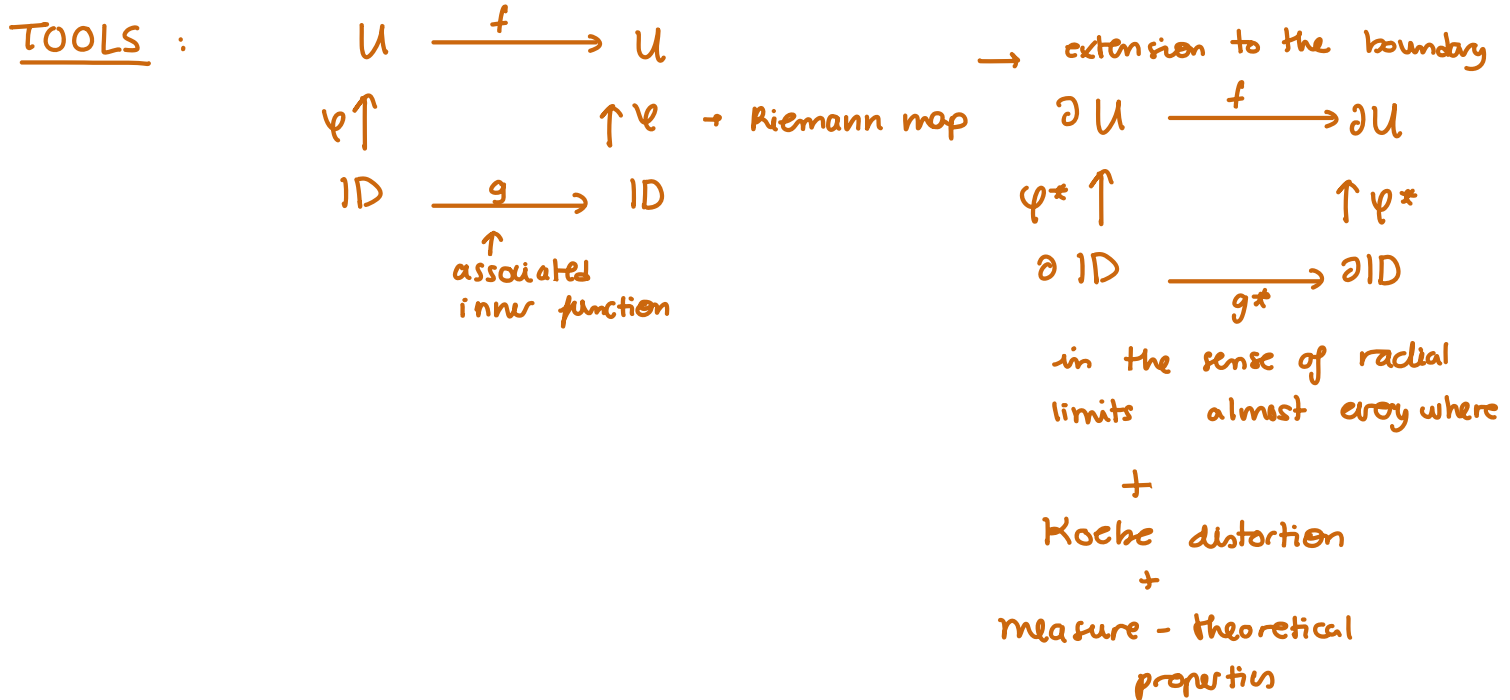 TOOLS :
U f→ U
φ↑ ↑φ → Riemann map
ID g→ ID
↑
associated
inner function
→ extension to the boundary
∂U f→ ∂U
φ* ↑ ↑ φ*
∂ID → ∂ID
g*
in the sense of radial
limits almost everywhere
+
Koebe distortion
+
measure - theoretical
properties